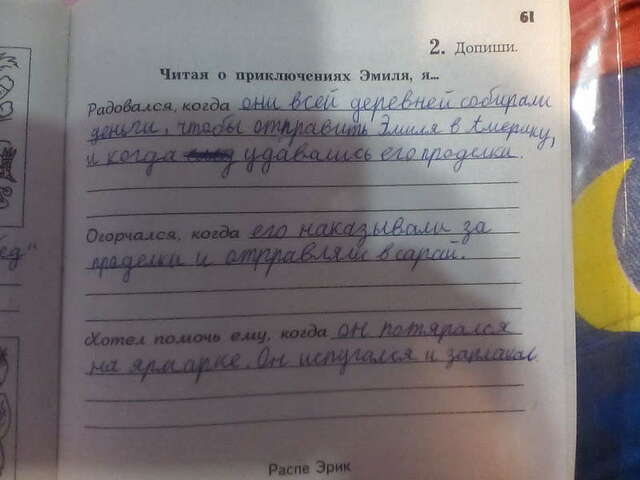 61
2. Допиши.
Читая о приключениях Эмиля, я...
Радовался, когда они всей деревней собирали
деньги, чтобы отправить Эмиля в Америку,
и когда удавались его проделки.
Огорчался, когда его наказывали за
проделки и отправляли в сарай.
Хотел помочь ему, когда он потярался
на ярмарке. Он испугался и заплакал
Распе Эрик
ед"